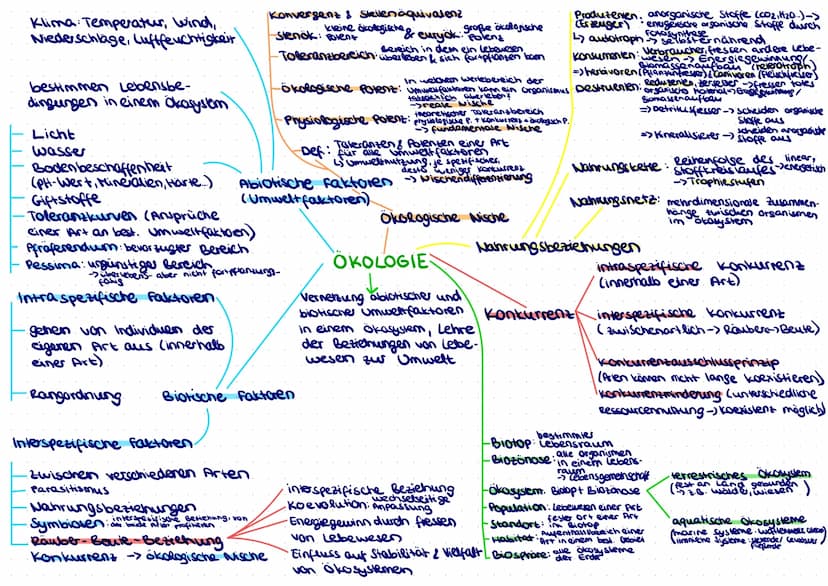 Klima: Temperatur, Wind,
Niederschläge, Luftfeuchtigkeit
bestimmen Lebensbe-
dingungen in einem Ökosystem
Licht
Wasser
Bodenbeschaffenheit
(pH-Wert, Mineralien, Härte...)
Giftstoffe
Toleranzkurven (Ansprüche
einer Art an best. Umweltfaktoren)
Präferendum: bevorzugter Bereich
Pessima: ungünstiger Bereich
Abiotische Faktoren
(Umweltfaktoren)
Intraspezifische Faktoren
gehen von Individuen der
eigenen Art aus (innerhalb
einer Art)
Rangordnung
Biotische Faktoren
Interspezifische Faktoren
zwischen verschiedenen Arten
Parasitismus
Nahrungsbeziehungen
Symbiosen: interspezifische Beziehung, von
Räuber-Beute-Beziehung
Konkurrenz → ökologische Nische
interspezifische Beziehung
Koevolution: wechselseitige
Anpassung
Energiegewinn durch fressen
von Lebewesen
Einfluss auf Stabilität & Vielfalt
von Ökosystemen
Konvergenz & Stellenäquivalenz
Stenök: kleine ökologische Potenz & euryök: große ökologische Potenz
Toleranzbereich: Bereich in dem ein Lebewesen
überleben & sich fortpflanzen kann
Ökologische Potenz: in welchem Wertebereich der
Umweltfaktoren kann ein Organismus
tatsächlich überleben?
→ reale Nische
Physiologische Potenz: theoretischer Toleranzbereich
→ fundamentale Nische
Def.: Toleranzen & Potenzen einer Art
für alle Umweltfaktoren
↳ Umweltnutzung, je spezifischer,
desto weniger Konkurrenz
→ Nischendifferenzierung
Ökologische Nische
ÖKOLOGIE
Vernetzung abiotischer und
biotischer Umweltfaktoren
in einem Ökosystem, Lehre
der Beziehungen von Lebe-
wesen zur Umwelt
Produzenten: anorganische Stoffe (CO₂, H₂O..) →
(Erzeuger) energiereiche organische Stoffe durch
Fotosynthese
↳ autotroph → selbsternährend
Konsumenten: Verbraucher, fressen andere Lebe-
wesen → Energiegewinnung/
Biomasseaufbau (heterotroph)
=> Herbivoren (Pflanzenfresser) / Carnivoren (Fleischfresser)
Destruenten: Reduzenten, Zersetzer → fressen totes
organische Material → Energiegewinnung/
Biomasseaufbau
=> Detritusfresser → scheiden organische
Stoffe aus
=> Mineralisierer → scheiden anorganische
Stoffe aus
Nahrungskette: Reihenfolge des linear,
Stoffkreislaufes → energetisch
→ Trophiestufen
Nahrungsnetz: mehrdimensionale Zusammen-
hänge zwischen Organismen
im Ökosystem
Nahrungsbeziehungen
Konkurrenz
intraspezifische Konkurrenz
(innerhalb einer Art)
interspezifische Konkurrenz
(zwischenartlich → Räuber → Beute)
Konkurrenzausschlussprinzip
(Arten können nicht lange koexistieren)
Konkurrenzminderung (unterschiedliche
Ressourcennutzung → Koexistenz möglich)
Biotop: bestimmter
Lebensraum
Biozönose: alle Organismen
in einem Lebens-
raum
→ Lebensgemeinschaft
Ökosystem: Biotop + Biozönose
Population: Lebewesen einer Art
Standort: fester Ort einer Art
im Biotop
Habitat: Aufenthaltsbereich einer
Art in einem best. Gebiet
Biosphäre: alle Ökosysteme
der Erde
terrestrisches Ökosystem
(fest an Land gebunden
→ z.B. Wälder, Wiesen)
aquatische Ökosysteme